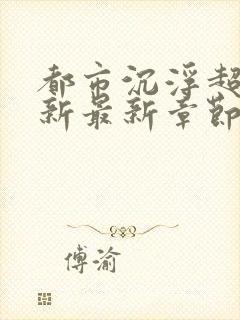 都市沉浮超
新最新章節
傅渝